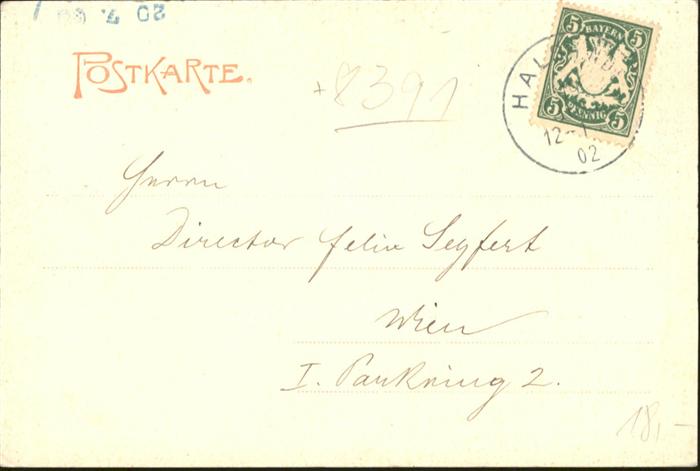 POSTKARTE.
+8391
5 BAYERN 5
5 PFENNIG 5
12-1
02
Herrn
Director Felix Seyfert
Wien
I. Parkring 2.
18,-